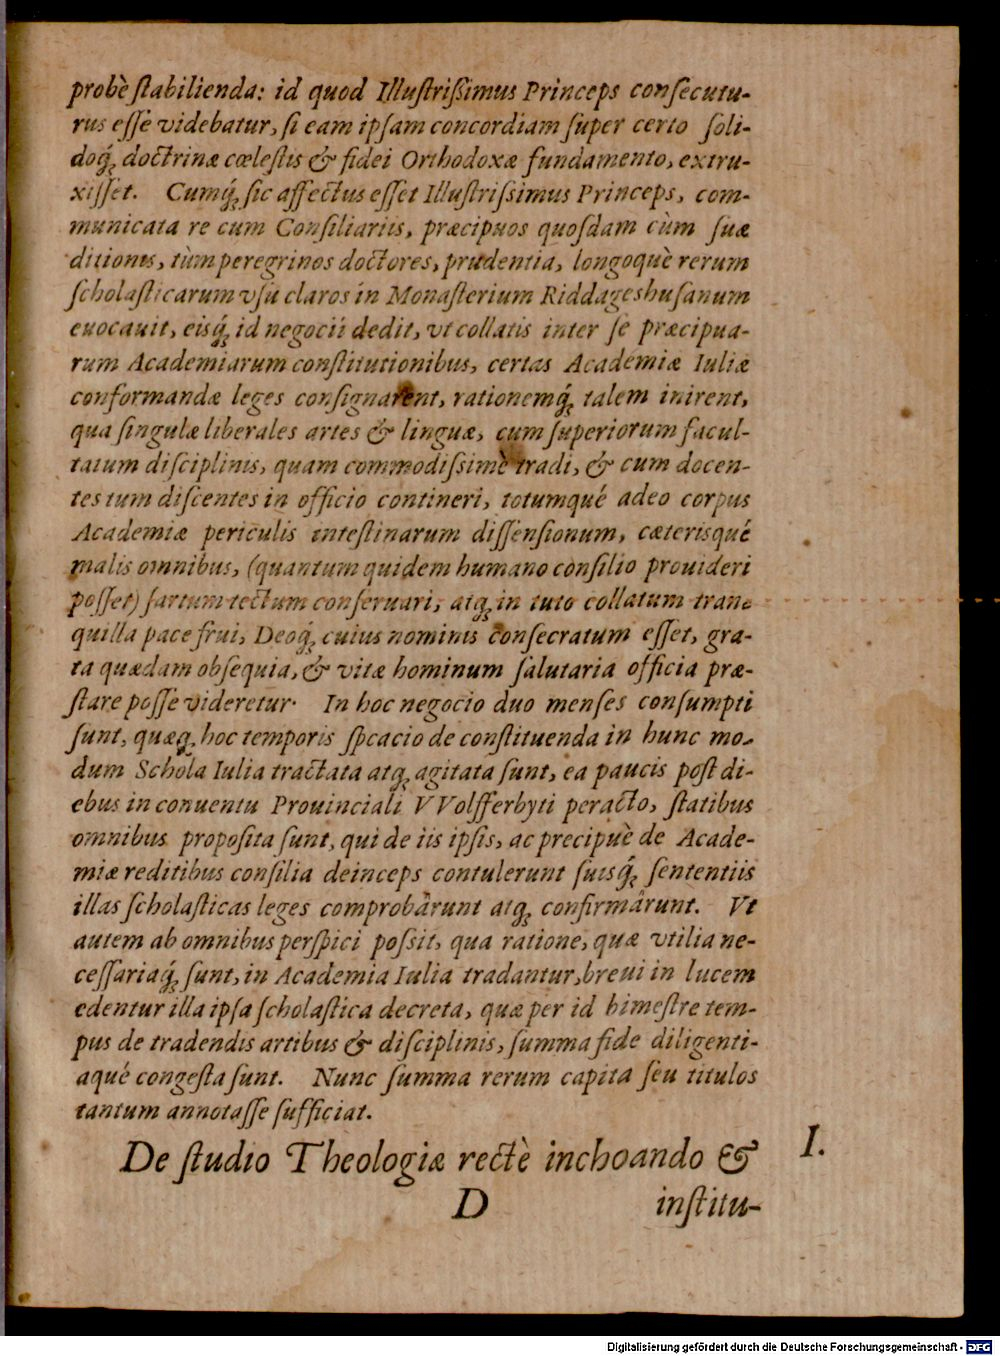 probè ſtabilienda: id quod Illuſtriſsimus Princeps conſecutu-
rus eſſe videbatur, ſi eam ipſam concordiam ſuper certo ſoli-
doq́ꝫ doctrinæ cœleſtis & fidei Orthodoxæ fundamento, extru-
xiſſet. Cumq́ꝫ ſic affectus eſſet Illuſtriſsimus Princeps, com-
municata re cum Conſiliariis, præcipuos quoſdam cùm ſuæ
ditionis, tùm peregrinos doctores, prudentia, longoquè rerum
ſcholaſticarum vſu claros in Monaſterium Riddageshuſanum
euocauit, eisq́ꝫ id negocii dedit, vt collatis inter ſe præcipua-
rum Academiarum conſtitutionibus, certas Academiæ Iuliæ
conformandæ leges conſignarent, rationemq́ꝫ talem inirent,
qua ſingulæ liberales artes & linguæ, cum ſuperiorum facul-
tatum diſciplinis, quam commodiſsimè tradi, & cum docen-
tes tum diſcentes in officio contineri, totumqué adeo corpus
Academiæ periculis inteſtinarum diſſenſionum, cæterisqué
malis omnibus, (quantum quidem humano conſilio prouideri
poſſet) ſartum tectum conſeruari, atqꝫ in tuto collatum tran-
quilla pace frui, Deoq́ꝫ cuius nominis conſecratum eſſet, gra-
ta quædam obſequia, & vitæ hominum ſalutaria officia præ-
ſtare poſſe videretur. In hoc negocio duo menſes conſumpti
ſunt, quæqꝫ hoc temporis ſpcacio de conſtituenda in hunc mo-
dum Schola Iulia tractata atqꝫ agitata ſunt, ea paucis poſt di-
ebus in conuentu Prouinciali VVolfferbyti peracto, ſtatibus
omnibus propoſita ſunt, qui de iis ipſis, ac precipuè de Acade-
miæ reditibus conſilia deinceps contulerunt ſuisq́ꝫ ſententiis
illas ſcholaſticas leges comprobârunt atqꝫ confirmârunt. Vt
autem ab omnibus perſpici poſsit, qua ratione, quæ vtilia ne-
ceſſariaq́ꝫ ſunt, in Academia Iulia tradantur, breui in lucem
edentur illa ipſa ſcholaſtica decreta, quæ per id bimeſtre tem-
pus de tradendis artibus & diſciplinis, ſumma fide diligenti-
aqué congeſta ſunt. Nunc ſumma rerum capita ſeu titulos
tantum annotaſſe ſufficiat.
De ſtudio Theologiæ rectè inchoando & I.
D inſtitu-
Digitalisierung gefördert durch die Deutsche Forschungsgemeinschaft - DFG